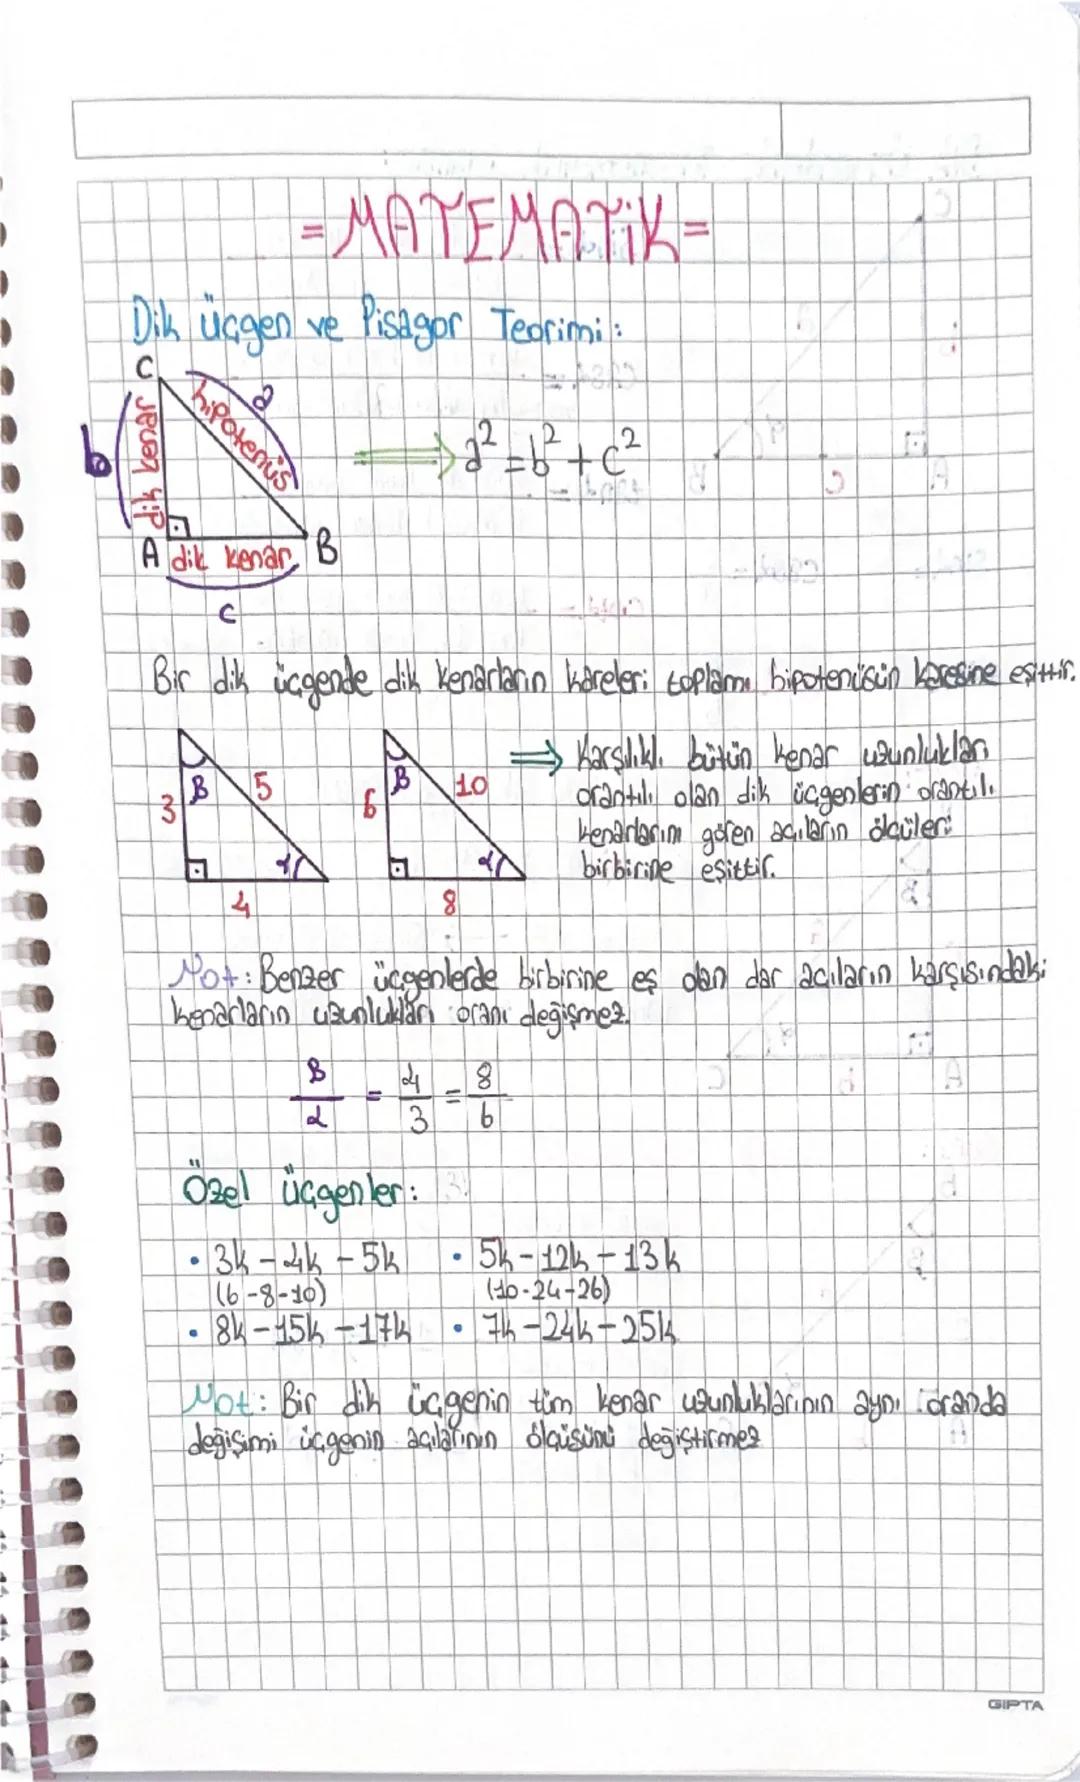 = MATEMATİK =
Dik üçgen ve Pisagor Teorimi:
C
b
dik kenar
hipotenüs
a
a² = b² + c²
A dik kenar B
c
Bir dik üçgende dik kenarların kareleri toplamı hipotenüsün karesine eşittir.
3 B 5
α
4
6 B 10
α
8
⇒ Karşılıklı bütün kenar uzunlukları
orantılı olan dik üçgenlerin orantılı
kenarlarını gören açıların ölçüleri
birbirine eşittir.
Not: Benzer üçgenlerde birbirine eş olan dar açıların karşısındaki
kenarların uzunlukları oranı değişmez.
B/α = 4/3 = 8/6
Özel üçgenler:
• 3k - 4k - 5k • 5k - 12k - 13k
(6-8-10) (10-24-26)
• 8k - 15k - 17k • 7k - 24k - 25k
Not: Bir dik üçgenin tüm kenar uzunluklarının aynı oranda
değişimi üçgenin açılarının ölçüsünü değiştirmez
GIPTA